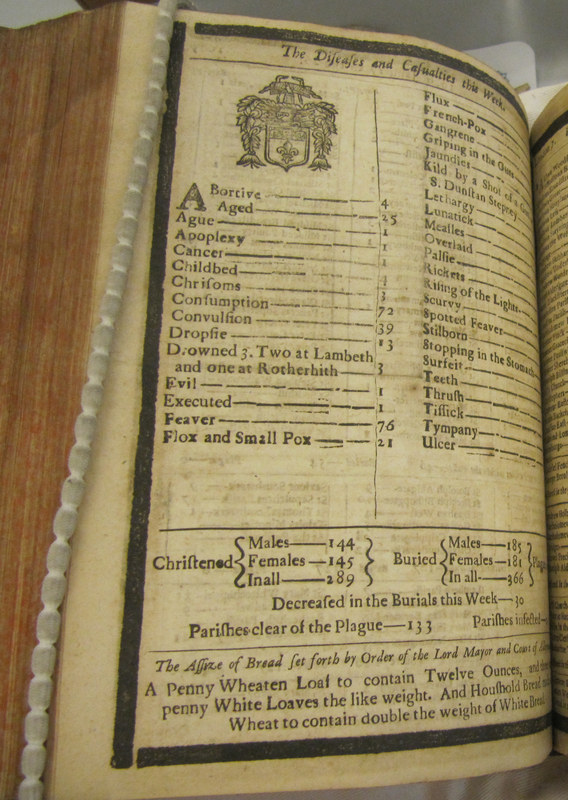 The Diſeaſes and Caſualties this Week.
ABortive 4
Aged 25
Ague 1
Apoplexy 1
Cancer 1
Childbed 4
Chriſoms 3
Conſumption 72
Convulſion 39
Dropſie 13
Drowned 3. Two at Lambeth
and one at Rotherhith 3
Evil 1
Executed 1
Feaver 76
Flox and Small Pox 21
Flux
French-Pox
Gangrene
Griping in the Guts
Jaundies
Kild by a Shot of a
S. Dunſtan Stepney
Lethargy
Lunatick
Meaſles
Overlaid
Palſie
Rickets
Riſing of the Lights
Scurvy
Spotted Feaver
Stilborn
Stopping in the Stomach
Surfeit
Teeth
Thruſh
Tiſſick
Tympany
Ulcer
Chriſtened
Males—144
Females—145
In all—289
Buried
Males—185
Females—181
In all—366
Plag
Decreaſed in the Burials this Week—30
Pariſhes clear of the Plague—133 Pariſhes infected—
The Aſſize of Bread ſet forth by Order of the Lord Mayor and Court of
A Penny Wheaten Loaf to contain Twelve Ounces, and
penny White Loaves the like weight. And Houſhold Bread
Wheat to contain double the weight of White Bread.